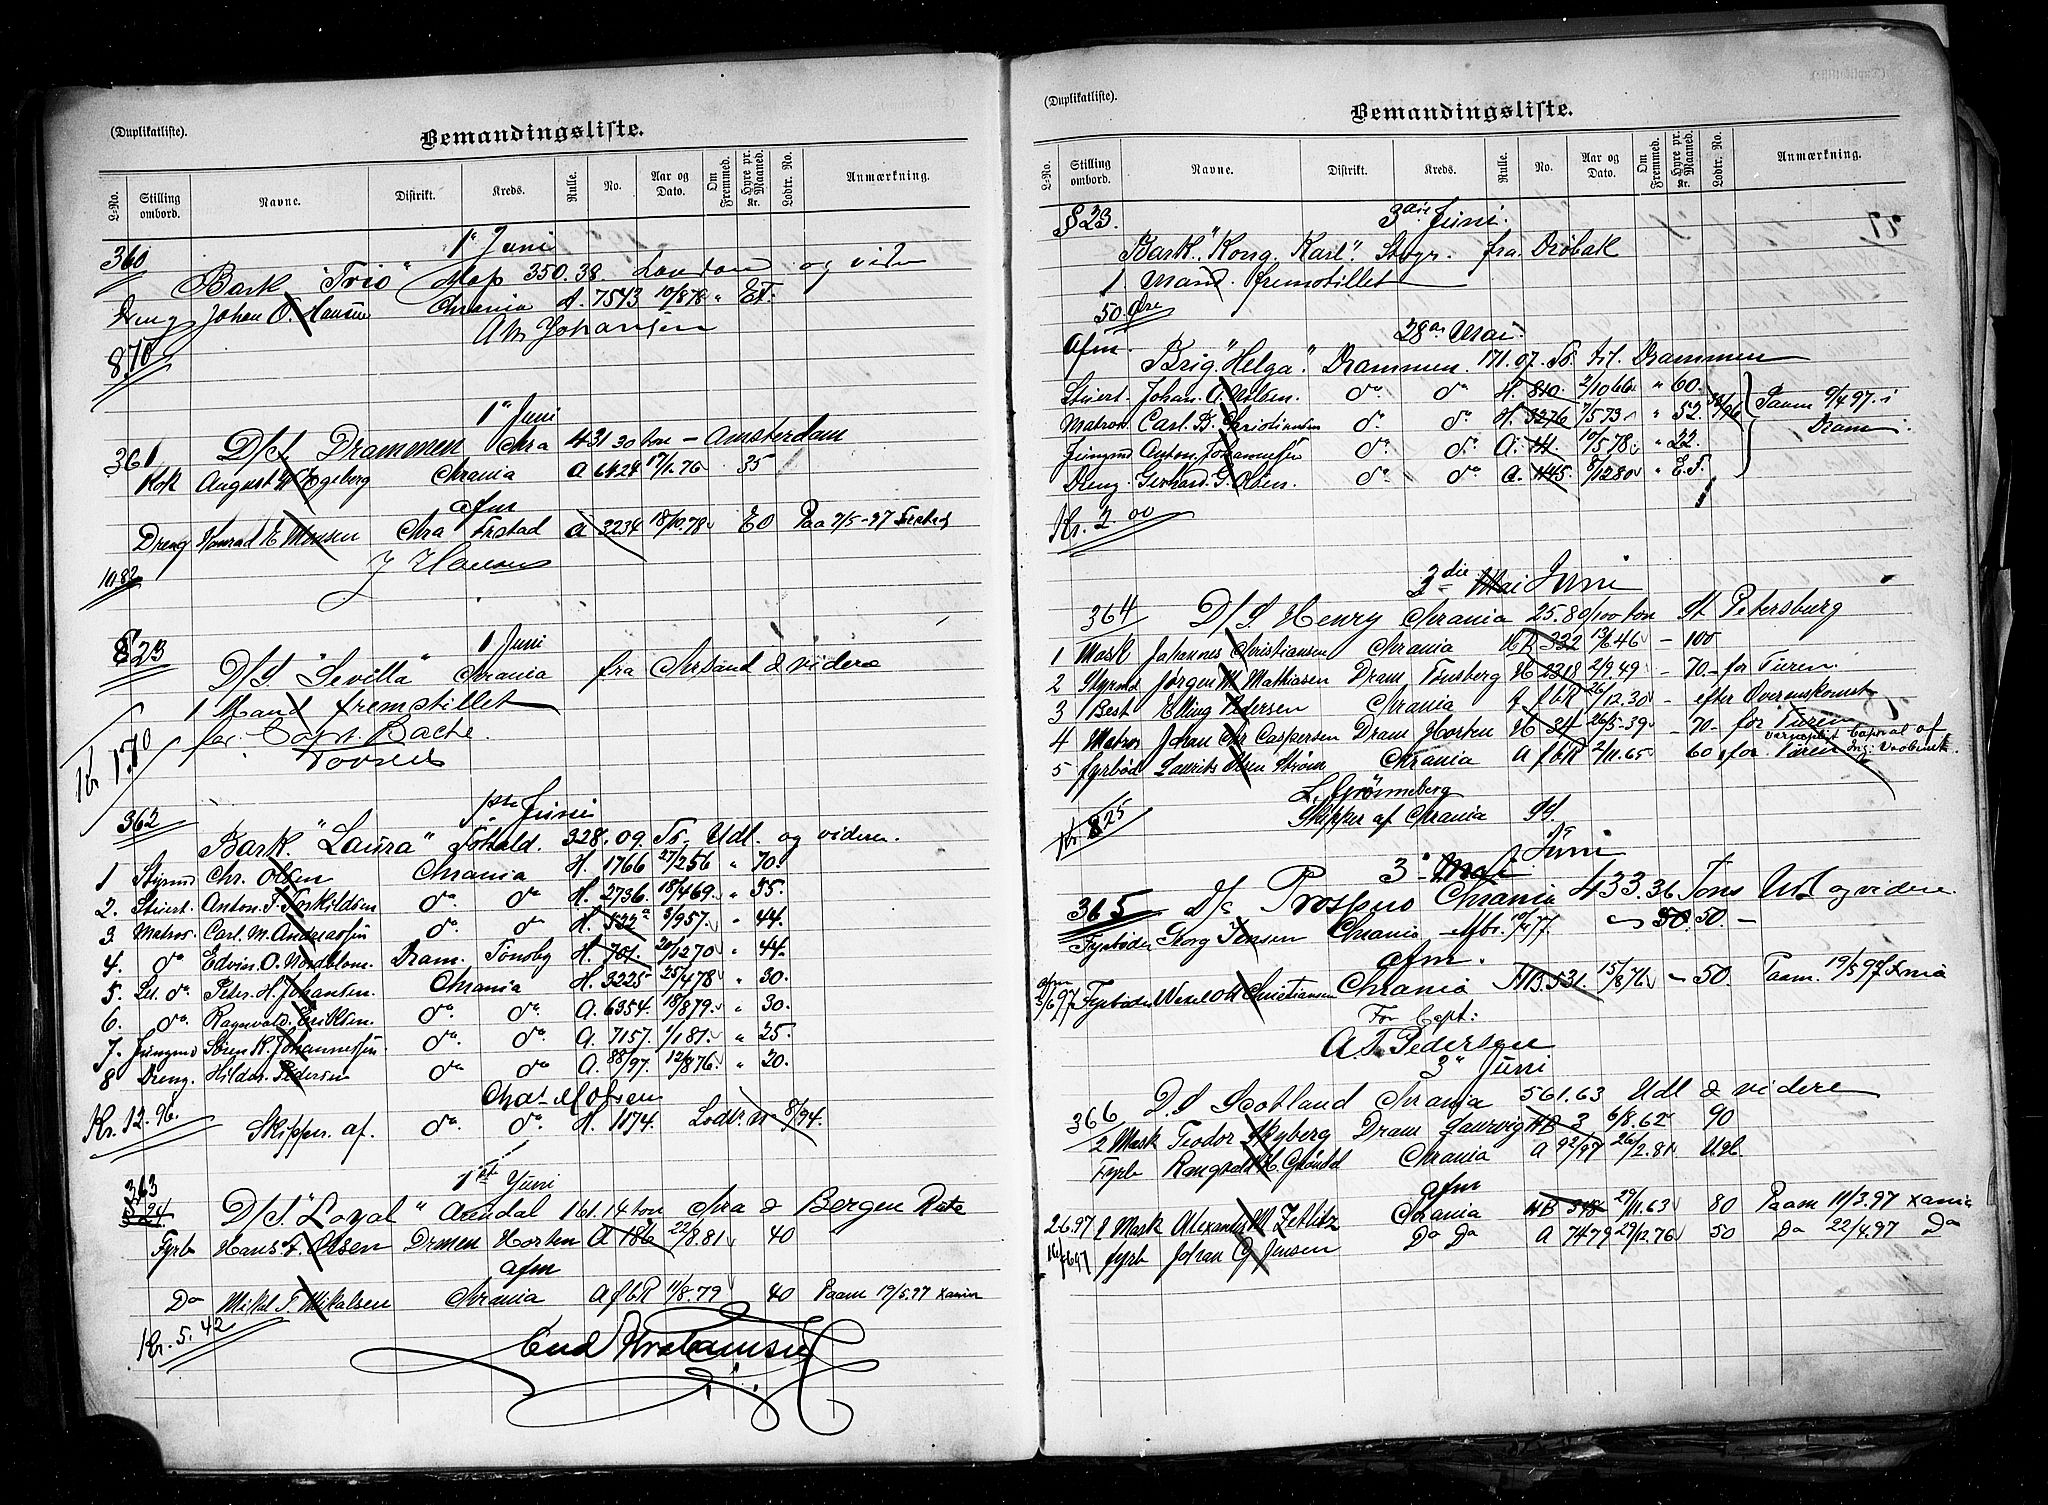 (Duplikatliste).
Bemandingsliste.
L-No. Stilling ombord. Navne. Distrikt. Kreds. Rulle. No. Aar og Dato. Om Fremmed. Hyre pr. Maaned. Kr. Lodtr. No. Anmærkning.
360 1" Juni
Bark "Trio" 350.38 London og videre
Dreng Johan O. Hansen Chrania A. 7543 10/8 78 " EF.
A M Johansen
8.70
1" Juni
361 D/S. Drammen Chra 431 30 ton - Amsterdam
Kok August Engeberg Chrania A 6424 17/1.76 35
afm
Dreng Konrad E Monsen Chra Frstad A 3234 18/10.78 EO Paa 7/5-97 Frstad
J Hansen
10.82
§23 1 Juni
D/S. "Sevilla" Chrania fra Chrsand & videre
1 Mand fremstillet
for Capt. Bache.
Kr 1.70
362 1ste Juni
Bark "Laura" 328.09. Ts. Udl. og videre.
1 Styrmd Chr. Olsen Chrania H. 1766 27/2 56 " 70.
2. Stuert. Anton. T. Torkildsen do do H. 2736. 18/4 69. " 55.
3 Matros. Carl. M. Andreassen do do H. 532 5/9 57. " 44.
4. do Edvin. O. Nordblom. Dram. Tönsbg H. 701. 20/12 70 " 44.
5. Let. do. Peter. H. Johansen. Chrania H. 3225 25/4 78 " 30.
6. do. Ragnvald. Eriksen. do do. A. 6354. 18/8 79. " 30.
7. Jungmd Sören K. Johannessen. do do A. 7157. 1/1 81. " 25.
8 Dreng. Hildor. Pedersen do do A. 88/97. 12/8 76. " 20.
Chas M Olsen
Kr. 12.96. Skipper. af. do. do. H. 1174. Lodtr. No 8/94.
363 1ste Juni
D/S. "Loyal" Arendal 161.14 ton Chra & Bergen Rute
Fyrb Hans F. Olsen Drmen Horten A 186 22/8.81 40
afm
Do Mikl T Mikalsen Chrania A fbR 11/8.79 40 Paam 19/5.97 Xania
Kr. 5.42
(Duplikatliste).
Bemandingsliste.
L-No. Stilling ombord. Navne. Distrikt. Kreds. Rulle. No. Aar og Dato. Om Fremmed. Hyre pr. Maaned. Kr. Lodtr. No. Anmærkning.
§23. 3die Juni. 27
Bark. "Kong. Karl". fra. Dröbak
1 Mand. fremstillet
50 Øre
afm. 28de Mai.
Brig "Helga". Drammen. 171.07. Ts. til. Drammen
Stuert. Johan. A. Nilsen. do do H. 810. 2/10 66. " 60.
Matros. Carl. B. Christiansen do. do H. 3276 7/5 73. " 52. Paam 9/4 97. i
Jungmd Anton. Johannessen do. do. A. 141. 10/5 78. " 22. Dram.
Dreng. Gerhard. G. Olsen. do do A. 1145. 8/12 80 " E.F.
Kr. 2.00
3die Mai Juni
364 D/S Henry Chrania 25.80/100 ton St Petersburg
1 Mask Johannes Christiansen Chrania HB 322 13/6.46 - 100
2 Styrmd Jørgen M Mathiasen Dram Tönsberg H 2318 2/9.49 - 70 - for Turen.
3 Best Elling Pedersen Chrania fbR 26/12.30 - efter Overenskomst
4 Matros Johan Chr Caspersen Dram Horten H 34 26/5-39 - 70 - for Turen
5 Fyrbød Laurits Olsen Strøm Chrania A fbR 2/11.65 60 for Turen
L. Grönneberg
Kr 8.25 Skipper af Chrania
3" Mai Juni
365 D/S Prospero Chrania 433.36 Tons Udl og videre
Fyrbøder Georg Jensen Chrania 50. 50. -
afm.
Fyrbøder Chrania HB. 531. 15/8 76. - 50 Paam. 19/5 97 Xania
For Capt:
A. T. Pedersen
3" Juni
366 D.S Scotland Chrania 561.63 Udl & videre
2 Mask Teodor Skyberg Dram Laurvig HB 3 6/8.62 90
Fyrb Rangvald H. Gröndal Chrania A 92/97 26/2.81 Ugl.
afm
2.6.97 1 Mask Alexander M Zetlitz Chrania HB 348 29/11.63 80 Paam 11/3.97 Xania
Fyrb Johan G Jensen Do Do A 7479 29/12.76 50 Do 22/4.97 Do